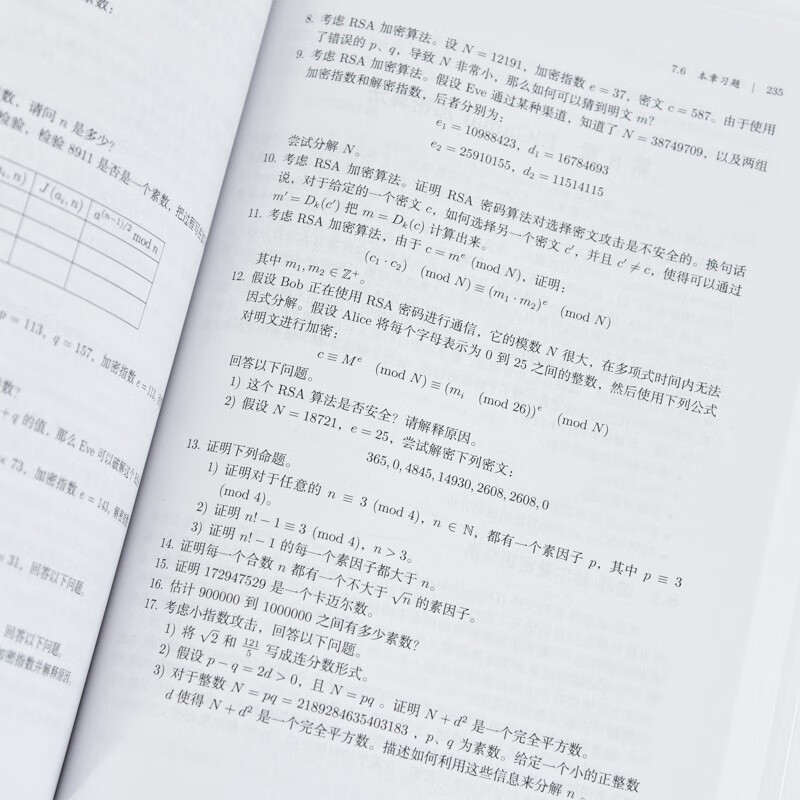 数：
数，请问 n 是多少？
检验，检验 8911 是否是一个素数，把过程
, n) J(aᵢ, n) a^{(n−1)/2} mod n
p = 113, q = 157, 加密指数 e = 113,
数？
+ q 的值，那么 Eve 可以破解这个
× 73, 加密指数 e = 143,
= 31, 回答以下问题。
回答以下问题。
加密指数并解释原因。
7.6 本章习题 | 235
8. 考虑 RSA 加密算法。设 N = 12191, 加密指数 e = 37, 密文 c = 587。由于使用
了错误的 p、q，导致 N 非常小，那么如何可以猜到明文 m？
9. 考虑 RSA 加密算法。假设 Eve 通过某种渠道，知道了 N = 38749709, 以及两组
加密指数和解密指数，后者分别为：
e₁ = 10988423, d₁ = 16784693
e₂ = 25910155, d₂ = 11514115
尝试分解 N。
10. 考虑 RSA 加密算法。证明 RSA 密码算法对选择密文攻击是不安全的。换句话
说，对于给定的一个密文 c，如何选择另一个密文 c′，并且 c′ ≠ c，使得可以通过
m′ = Dₖ(c′) 把 m = Dₖ(c) 计算出来。
11. 考虑 RSA 加密算法，由于 c = mᵉ (mod N)，证明：
(c₁ · c₂) (mod N) ≡ (m₁ · m₂)ᵉ (mod N)
其中 m₁, m₂ ∈ ℤ⁺。
12. 假设 Bob 正在使用 RSA 密码进行通信，它的模数 N 很大，在多项式时间内无法
因式分解。假设 Alice 将每个字母表示为 0 到 25 之间的整数，然后使用下列公式
对明文进行加密：
c ≡ Mᵉ (mod N) ≡ (mᵢ (mod 26))ᵉ (mod N)
回答以下问题。
1) 这个 RSA 算法是否安全？请解释原因。
2) 假设 N = 18721, e = 25, 尝试解密下列密文：
365, 0, 4845, 14930, 2608, 2608, 0
13. 证明下列命题。
1) 证明对于任意的 n ≡ 3 (mod 4), n ∈ ℕ, 都有一个素因子 p，其中 p ≡ 3
(mod 4)。
2) 证明 n! − 1 ≡ 3 (mod 4), n > 3。
3) 证明 n! − 1 的每一个素因子都大于 n。
14. 证明每一个合数 n 都有一个不大于 √n 的素因子。
15. 证明 172947529 是一个卡迈尔数。
16. 估计 900000 到 1000000 之间有多少素数？
17. 考虑小指数攻击，回答以下问题。
1) 将 √2 和 121/5 写成连分数形式。
2) 假设 p − q = 2d > 0, 且 N = pq 。证明 N + d² 是一个完全平方数。
3) 对于整数 N = pq = 2189284635403183 , p、q 为素数。给定一个小的正整数
d 使得 N + d² 是一个完全平方数。描述如何利用这些信息来分解 n 。